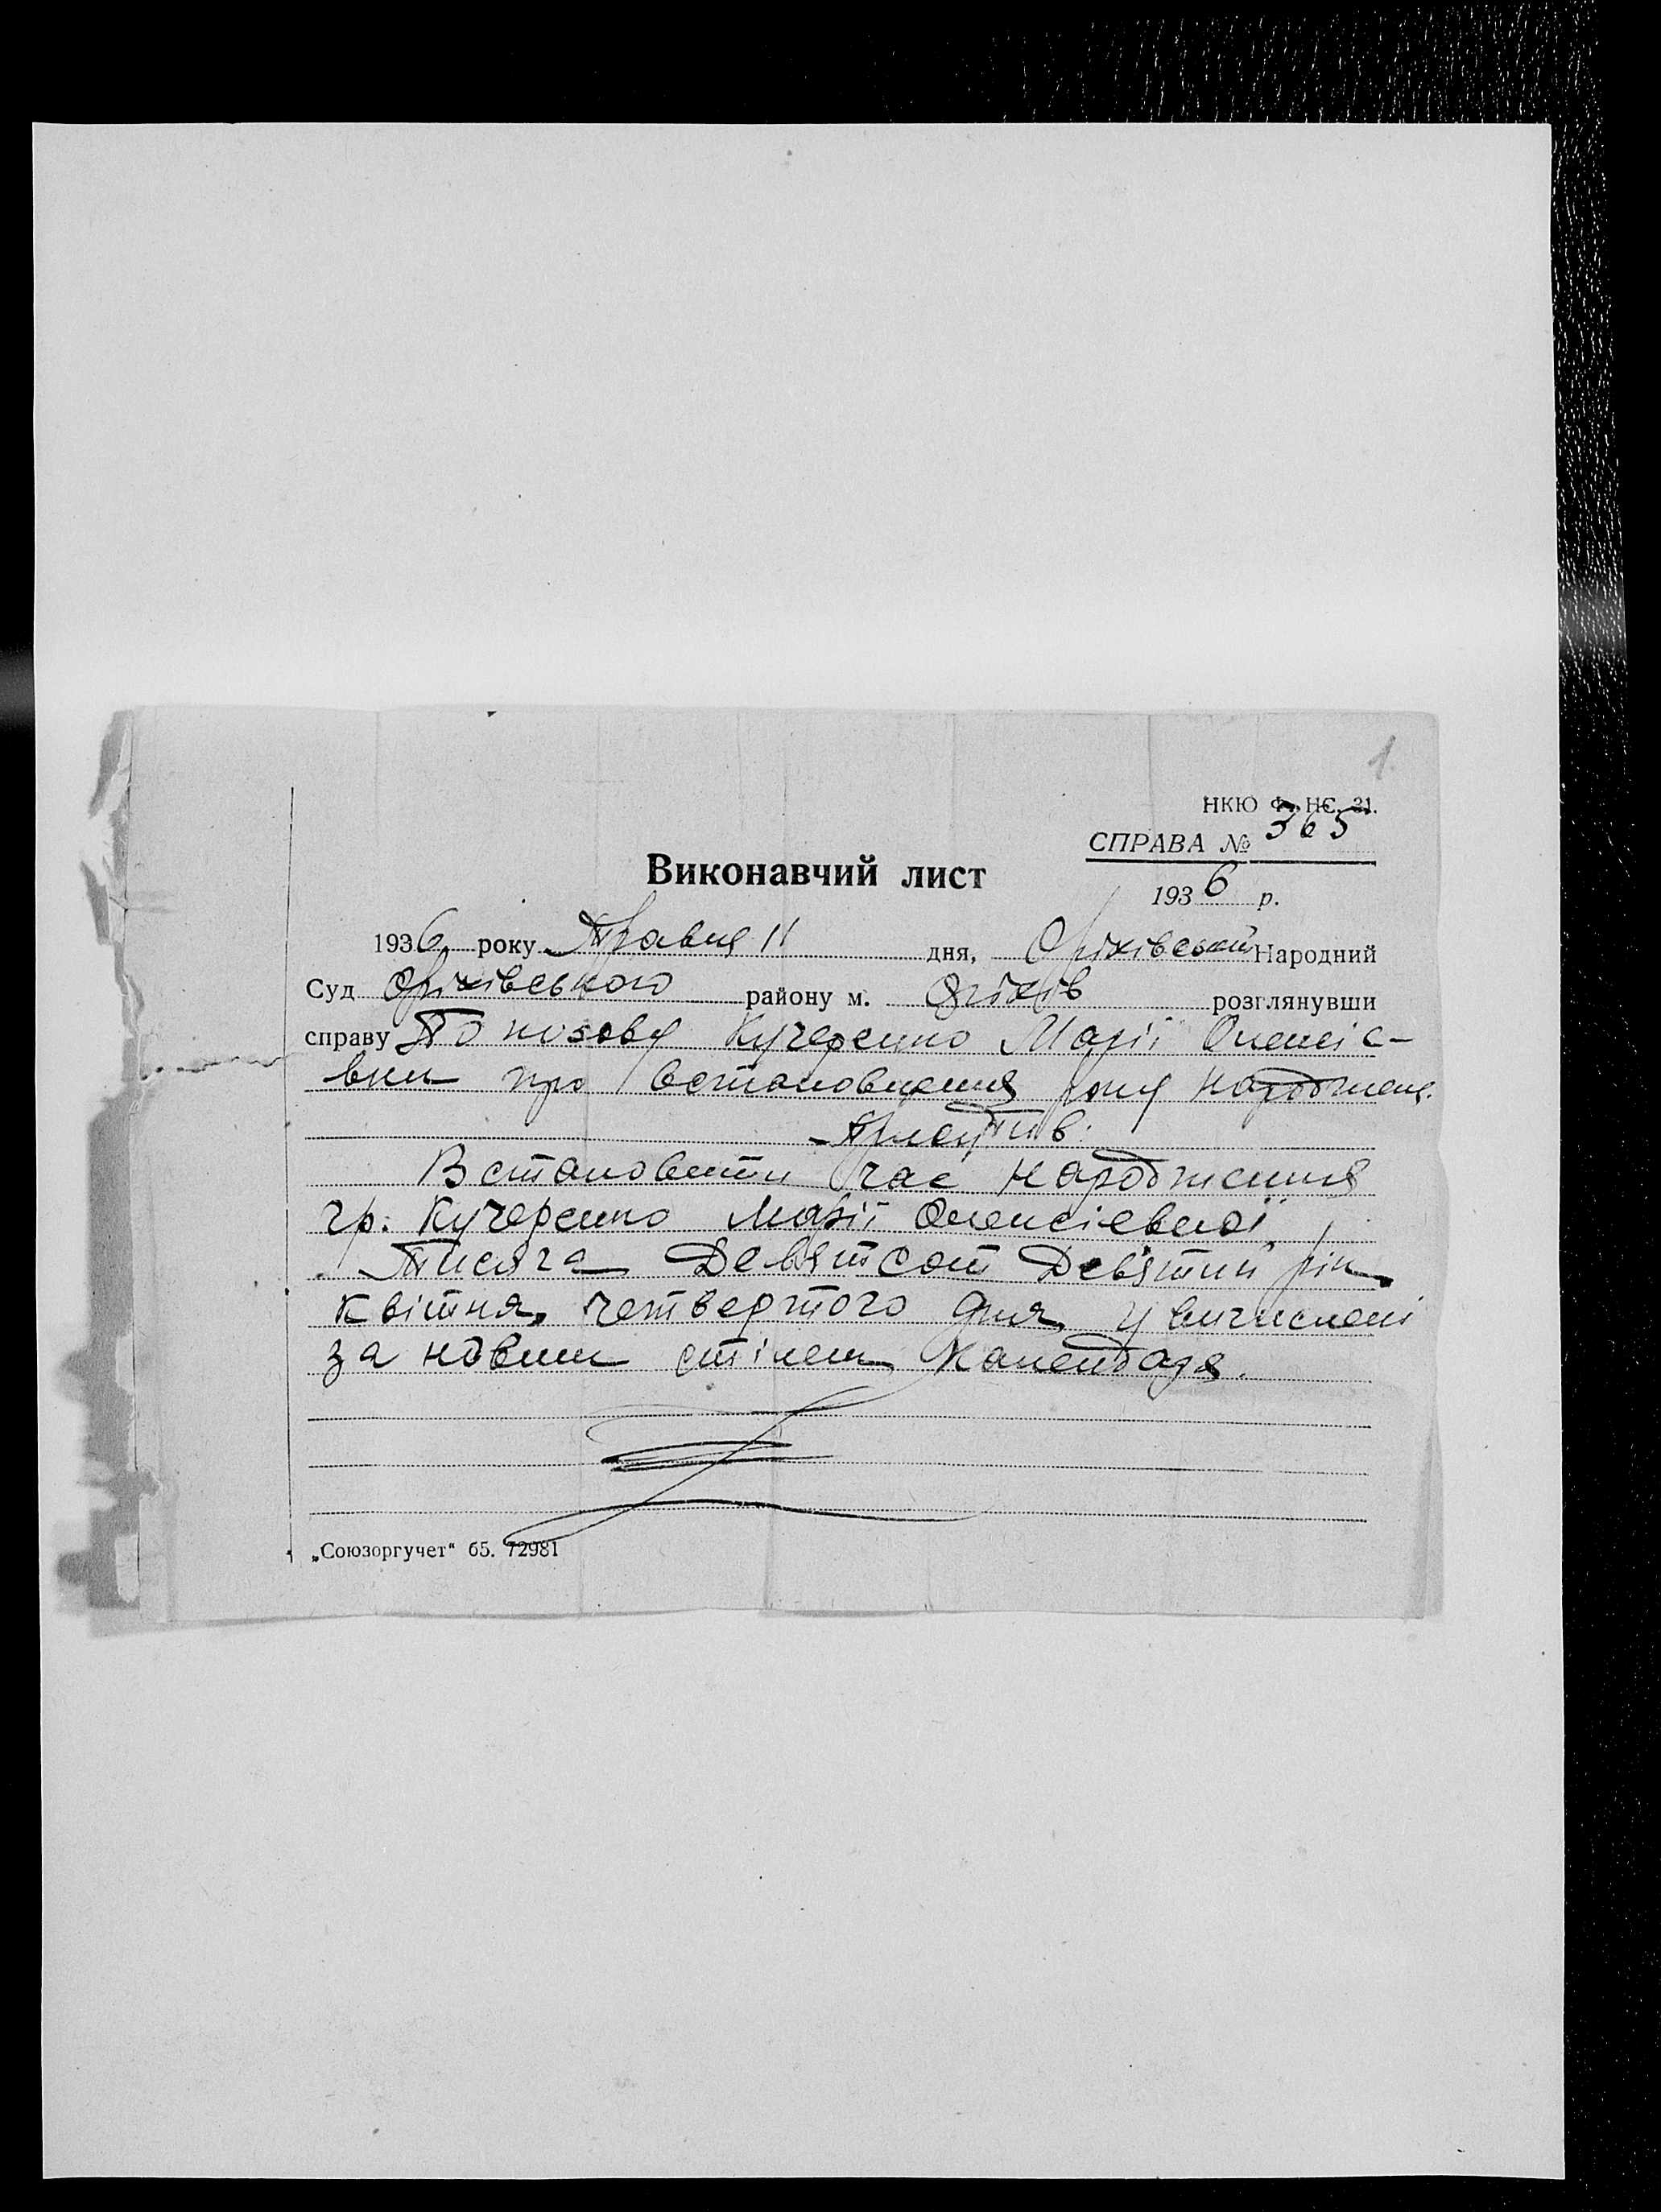 1.
НКЮ Ф. НС. 31.
СПРАВА № 365
Виконавчий лист
1936 р.
1936 року Травня 11 дня, Оріхівський Народний
Суд Оріхівського району м. Оріхів розглянувши
справу По позову Кучеренко Марії Олексіє-
вни про встановлення року народження.
Присудив:
Встановити час народження
гр. Кучеренко Марії Олексіевної
Тисяча Девятсот Девятий рік
квітня, четвертого дня, у вичислені
за новим стілем календаря.
„Союзоргучет“ 65. 72981